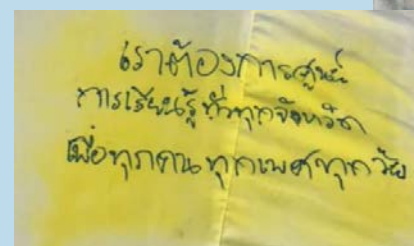 เราต้องการศูนย์
การเรียนรู้ที่ทุกจังหวัด
เพื่อทุกคน ทุกเพศ ทุกวัย